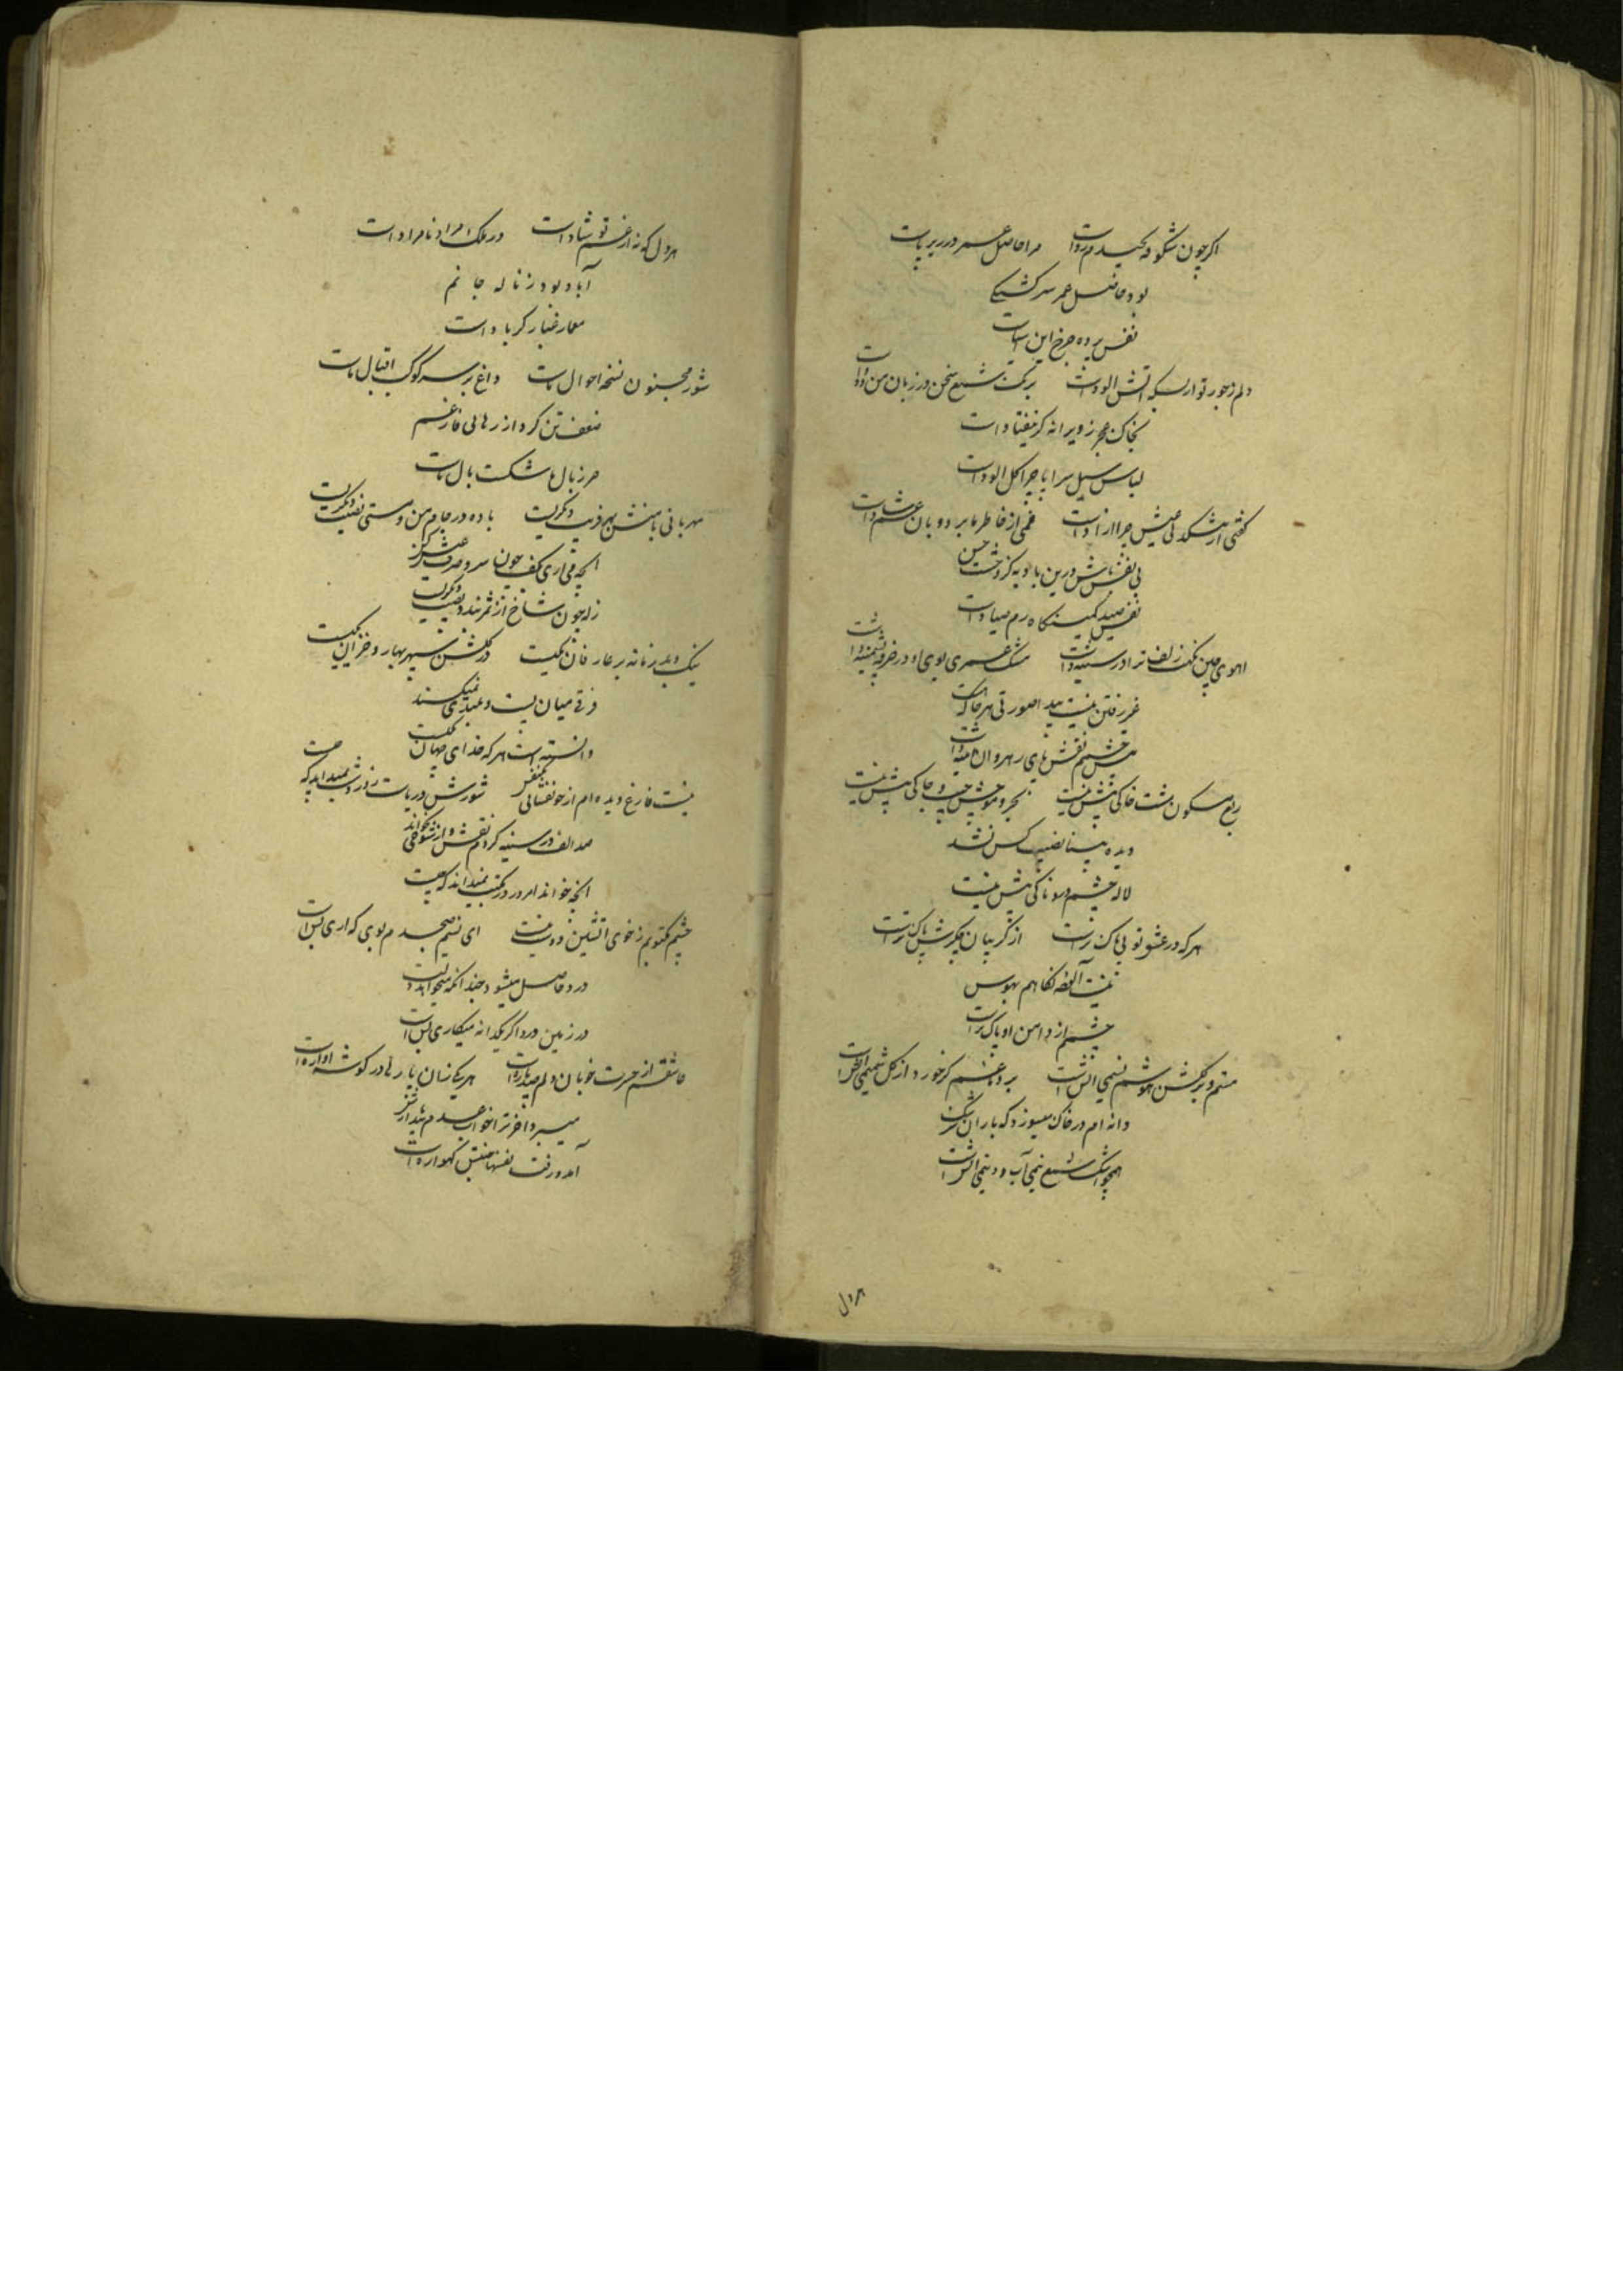 اکر چون شکوفه رواست مرا حاصل عمر در زیر پاست
بود حاصل عمر سرکشتکی
نفس برده چرخ این آسیاست
دلم ز جور تو از بسکه آتش الودست برنک شمع سخن در زبان من دودست
بخاک عجز ز ویرانه کر نیفتادست
لباس سیل سراپا چرا کل الودست
کفتی ار عیش چرا ازادست غمی از خاطر ما بر دو بان غم شادست
بی نفس باش درین بادیه کز وحشت حسن
نفس صید کمینکاه رم صیادست
اهوی چین نکهت زلف ترا در سینه داشت مشک عمری بوی او در خرقه پشمینه داشت
غیر رفتن نیست پیدا صورتی هر جا که هست
چشم نقش پای رهروان آئینه داشت
ربع مسکون مشت خاکی بیش نیست بحر و موجش جیب و چاکی بیش نیست
دیده بینا نصیب کس نشد
لاله چشم خونناکی بیش نیست
هر که در عشق تو بی باک ترست از کریبان جکرش پاک ترست
نیست آلوده نکاهم بهوس
چشمم از دامن او پاک ترست
منم و بر کلشن هوشم نسیمی آتش است بر دماغم کر خورد از کل شمیمی آتش است
دانه ام در خاک میسوزد که باران سرشک
همچو اشک شمع نیمی آب و نیمی آتش است
هر دل
هر دل که نه از غم تو شادست در ملک مراد نامرادست
آباد بود ز ناله جانم
معمار غبار کربادست
شور مجنون نسخه احوال ماست داغ بر سر کوکب اقبال ماست
ضعف تن کرد از رهایی فارغم
حرز بال ما شکست بال ماست
مهربانی با منش بهر فریب دیکریست باده در جام من و مستی نصیب دیکریست
انچه می اری بکف چون سرو صرف عیش کن
زانکه چون شاخ از ثمر بندد نصیب دیکریست
نیک و بد زمانه بر عارفان یکیست در کلشن سپهر بهار و خزان یکیست
فرقی میان نیست و بلندی نمیکند
دانسته است هر که خدای جهان یکیست
نیست فارغ دیده ام از خونفشانی یکنفس شورش دریاست روز و شب نمیداند که چیست
صد الف در سینه کردم نقش و از شوخی نخواند
انچه خواند امروز در مکتب نمیداند که چیست
چشم مکتوبم ز خوی آتشین دوست نیست ای نسیم صبحدم بویی که اری بس است
درد حاصل میشود چندانکه میخواهد دلت
در زمین درد اکر یکدانه میکاری بس است
عاشقم از حسرت خوبان دلم صد پاره است هر یکی زان پاره ها در کوشه اواره است
میبرد افزونتر از خوابم صدم بیدار نفس
آمد و رفت نفسها جنبش کهواره است